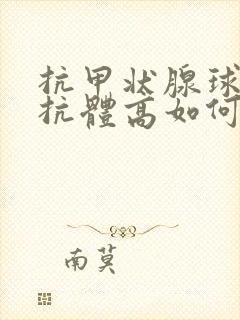 抗甲状腺球
抗體高如何
南莫